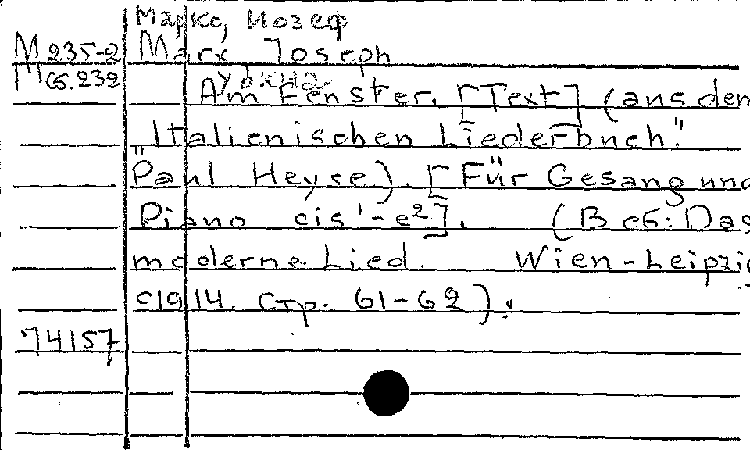 Маркс, Иозеф
М 235-2 Marx Joseph
М сб. 232 У окна
Am Fenster. [Text] (aus dem
"Italienischen Liederbuch."
Paul Heyse). [Für Gesang und
Piano cis'-e²]. (В сб: Das
moderne Lied. Wien-Leipzig
c1914. Стр. 61-62).
74157